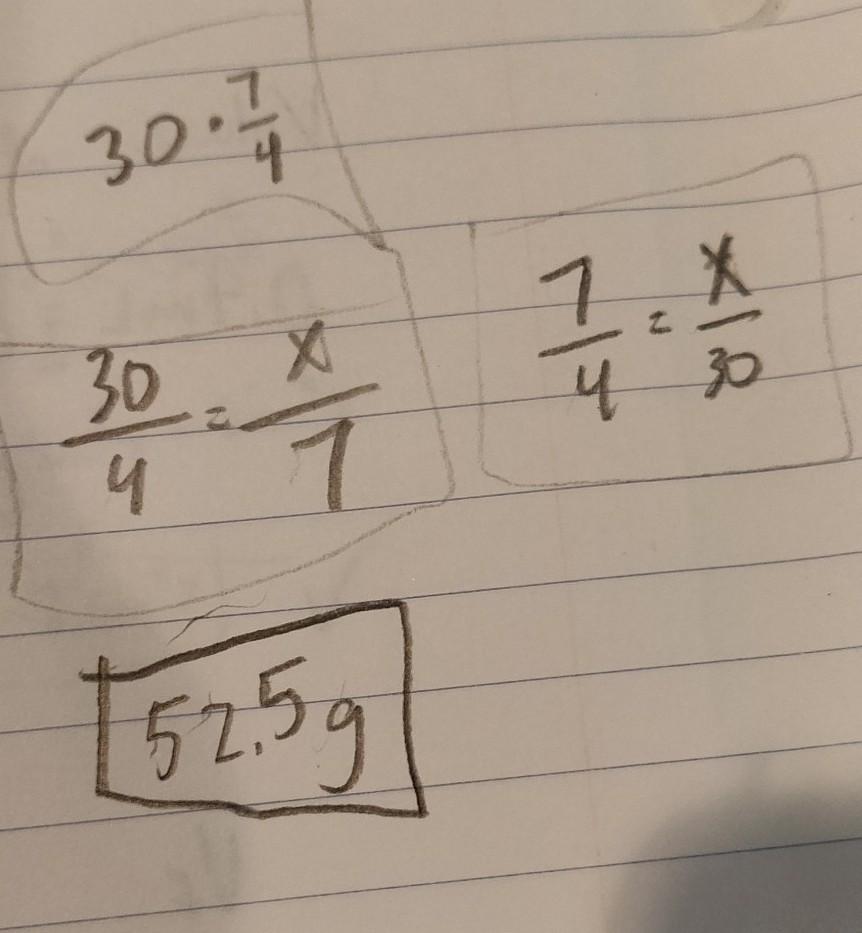 30 · 7/4
30/4 = x/7
7/4 = x/30
52.5g